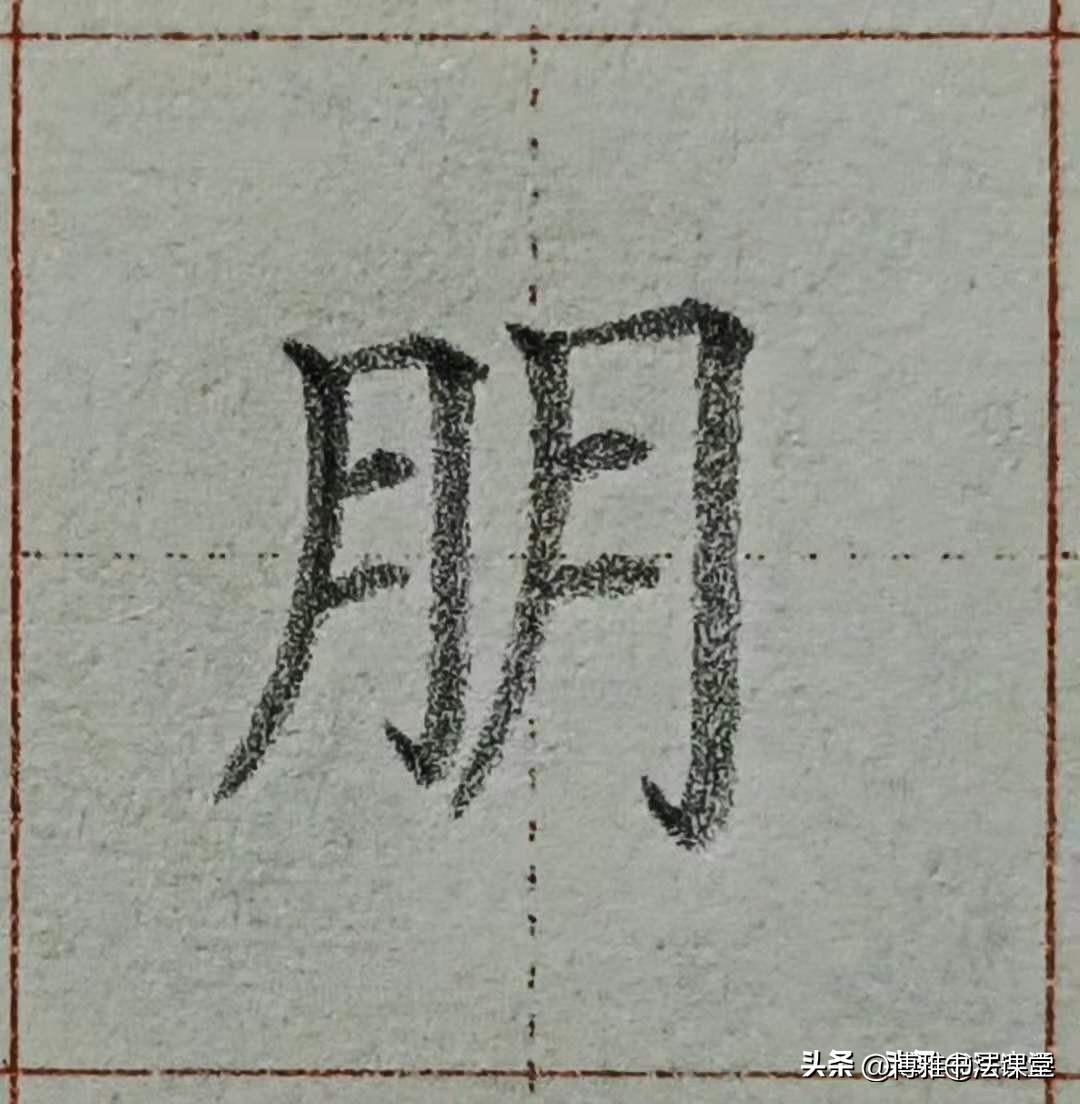 朋
头条 @博雅书法课堂